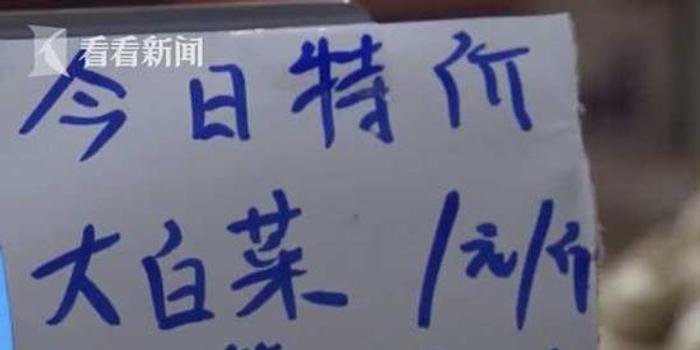 看看新闻
今日特价
大白菜 1元/斤